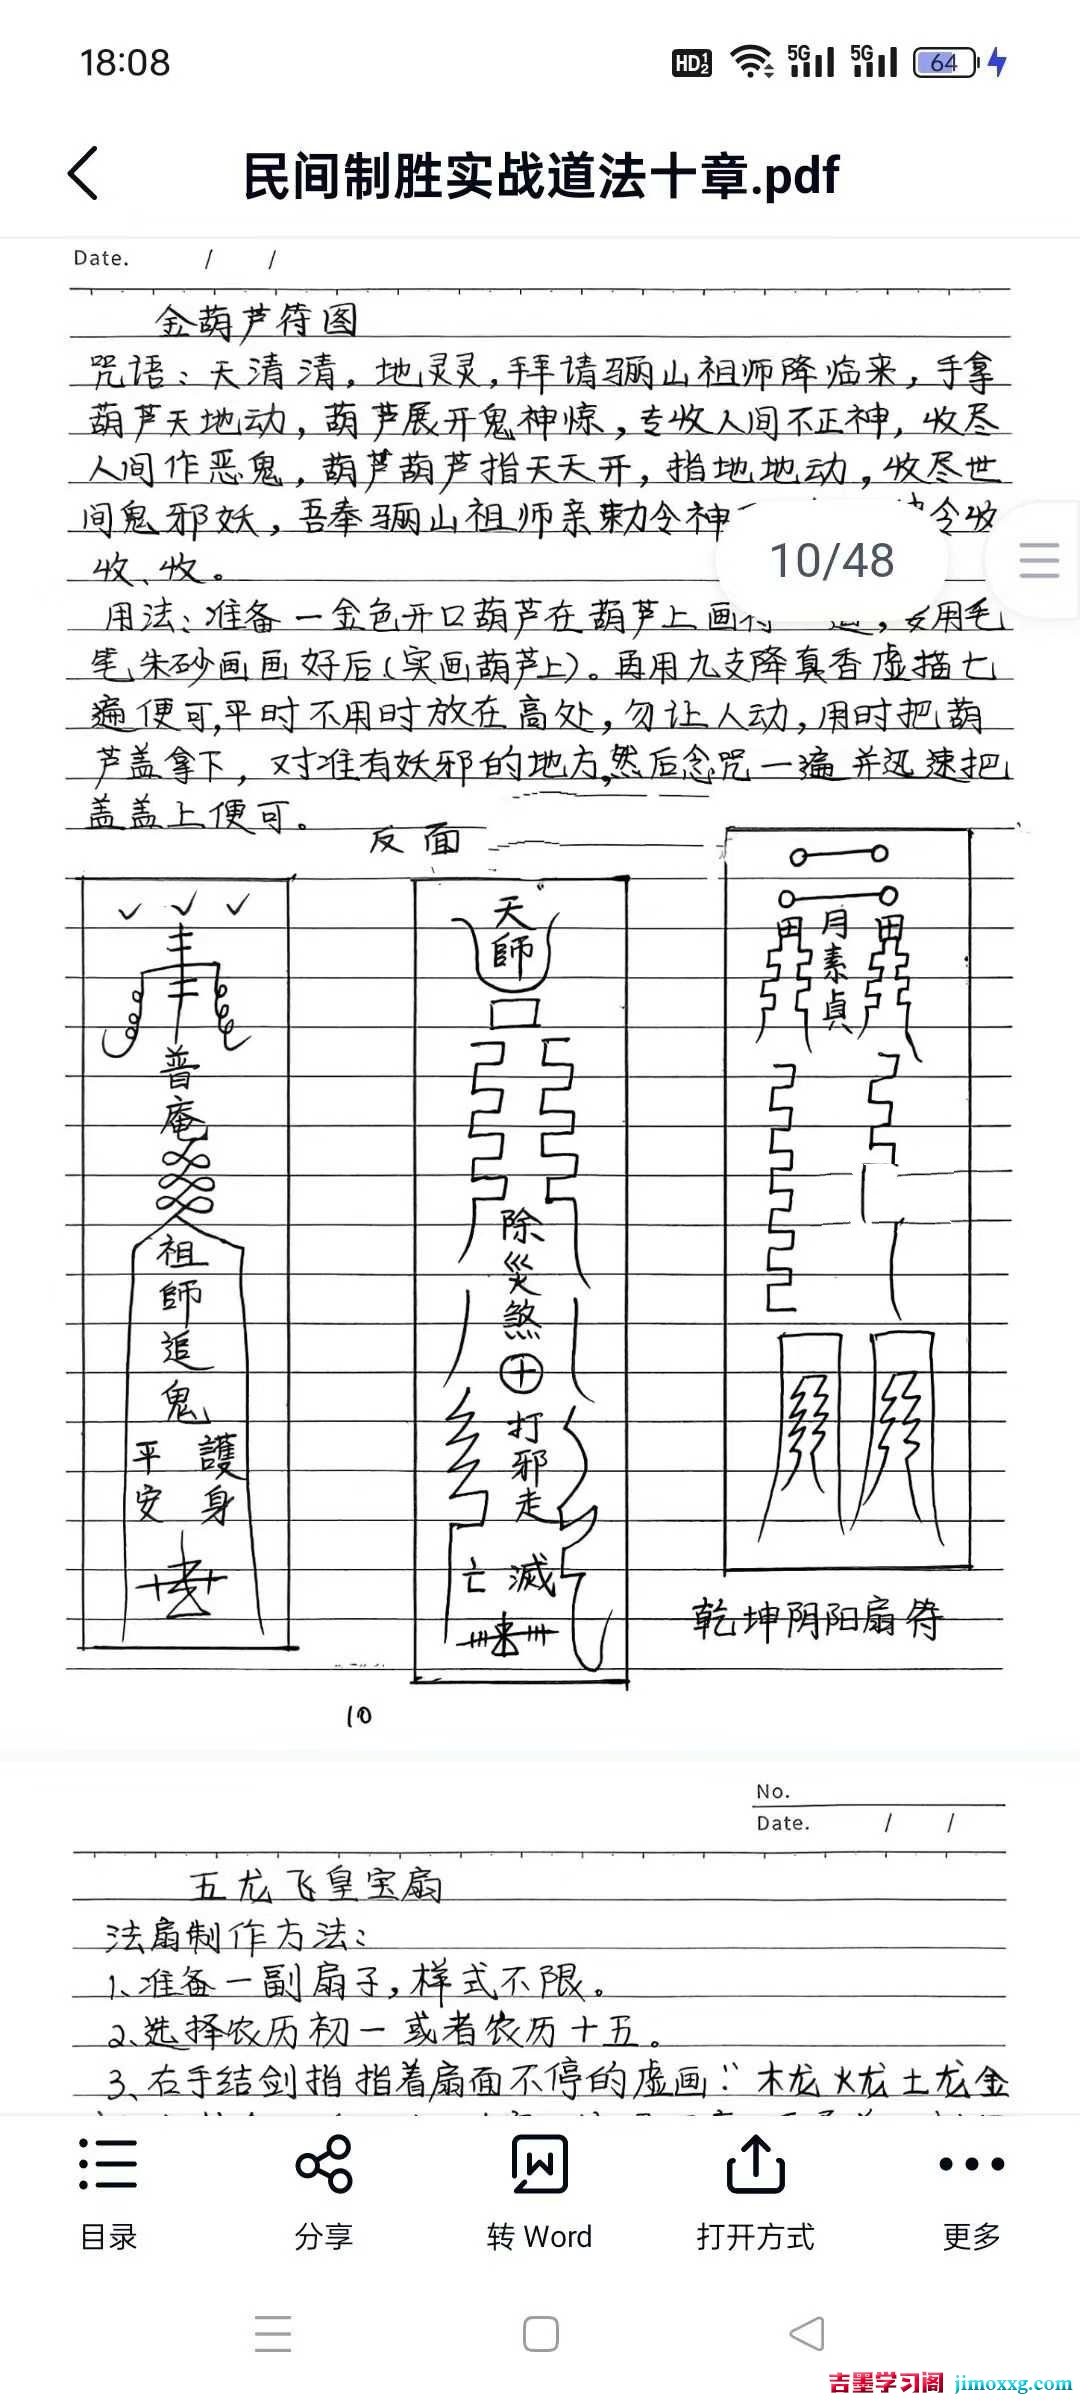 18:08
HD 1 2 5G 5G 64
民间制胜实战道法十章.pdf
Date. / /
金葫芦符图
咒语：天清清，地灵灵，拜请骊山祖师降临来，手拿
葫芦天地动，葫芦展开鬼神惊，专收人间不正神，收尽
人间作恶鬼，葫芦葫芦指天天开，指地地动，收尽世
间鬼邪妖，吾奉骊山祖师亲勅令神 令收
收、收。
10/48
用法：准备一金色开口葫芦在葫芦上画符 ，要用毛
笔朱砂画画好后（实画葫芦上）。再用九支降真香虚描七
遍便可，平时不用时放在高处，勿让人动，用时把葫
芦盖拿下，对准有妖邪的地方，然后念咒一遍并迅速把
盖盖上便可。
反面
普庵
祖師追鬼
平安
護身
天師
除災煞
打邪走
亡滅
田月田
素貞
乾坤阴阳扇符
10
No.
Date. / /
五龙飞皇宝扇
法扇制作方法：
1、准备一副扇子，样式不限。
2、选择农历初一或者农历十五。
3、右手结剑指指着扇面不停的虚画：“木龙火龙土龙金
目录
分享
转 Word
打开方式
更多
吉墨学习阁 jimoxxg.com